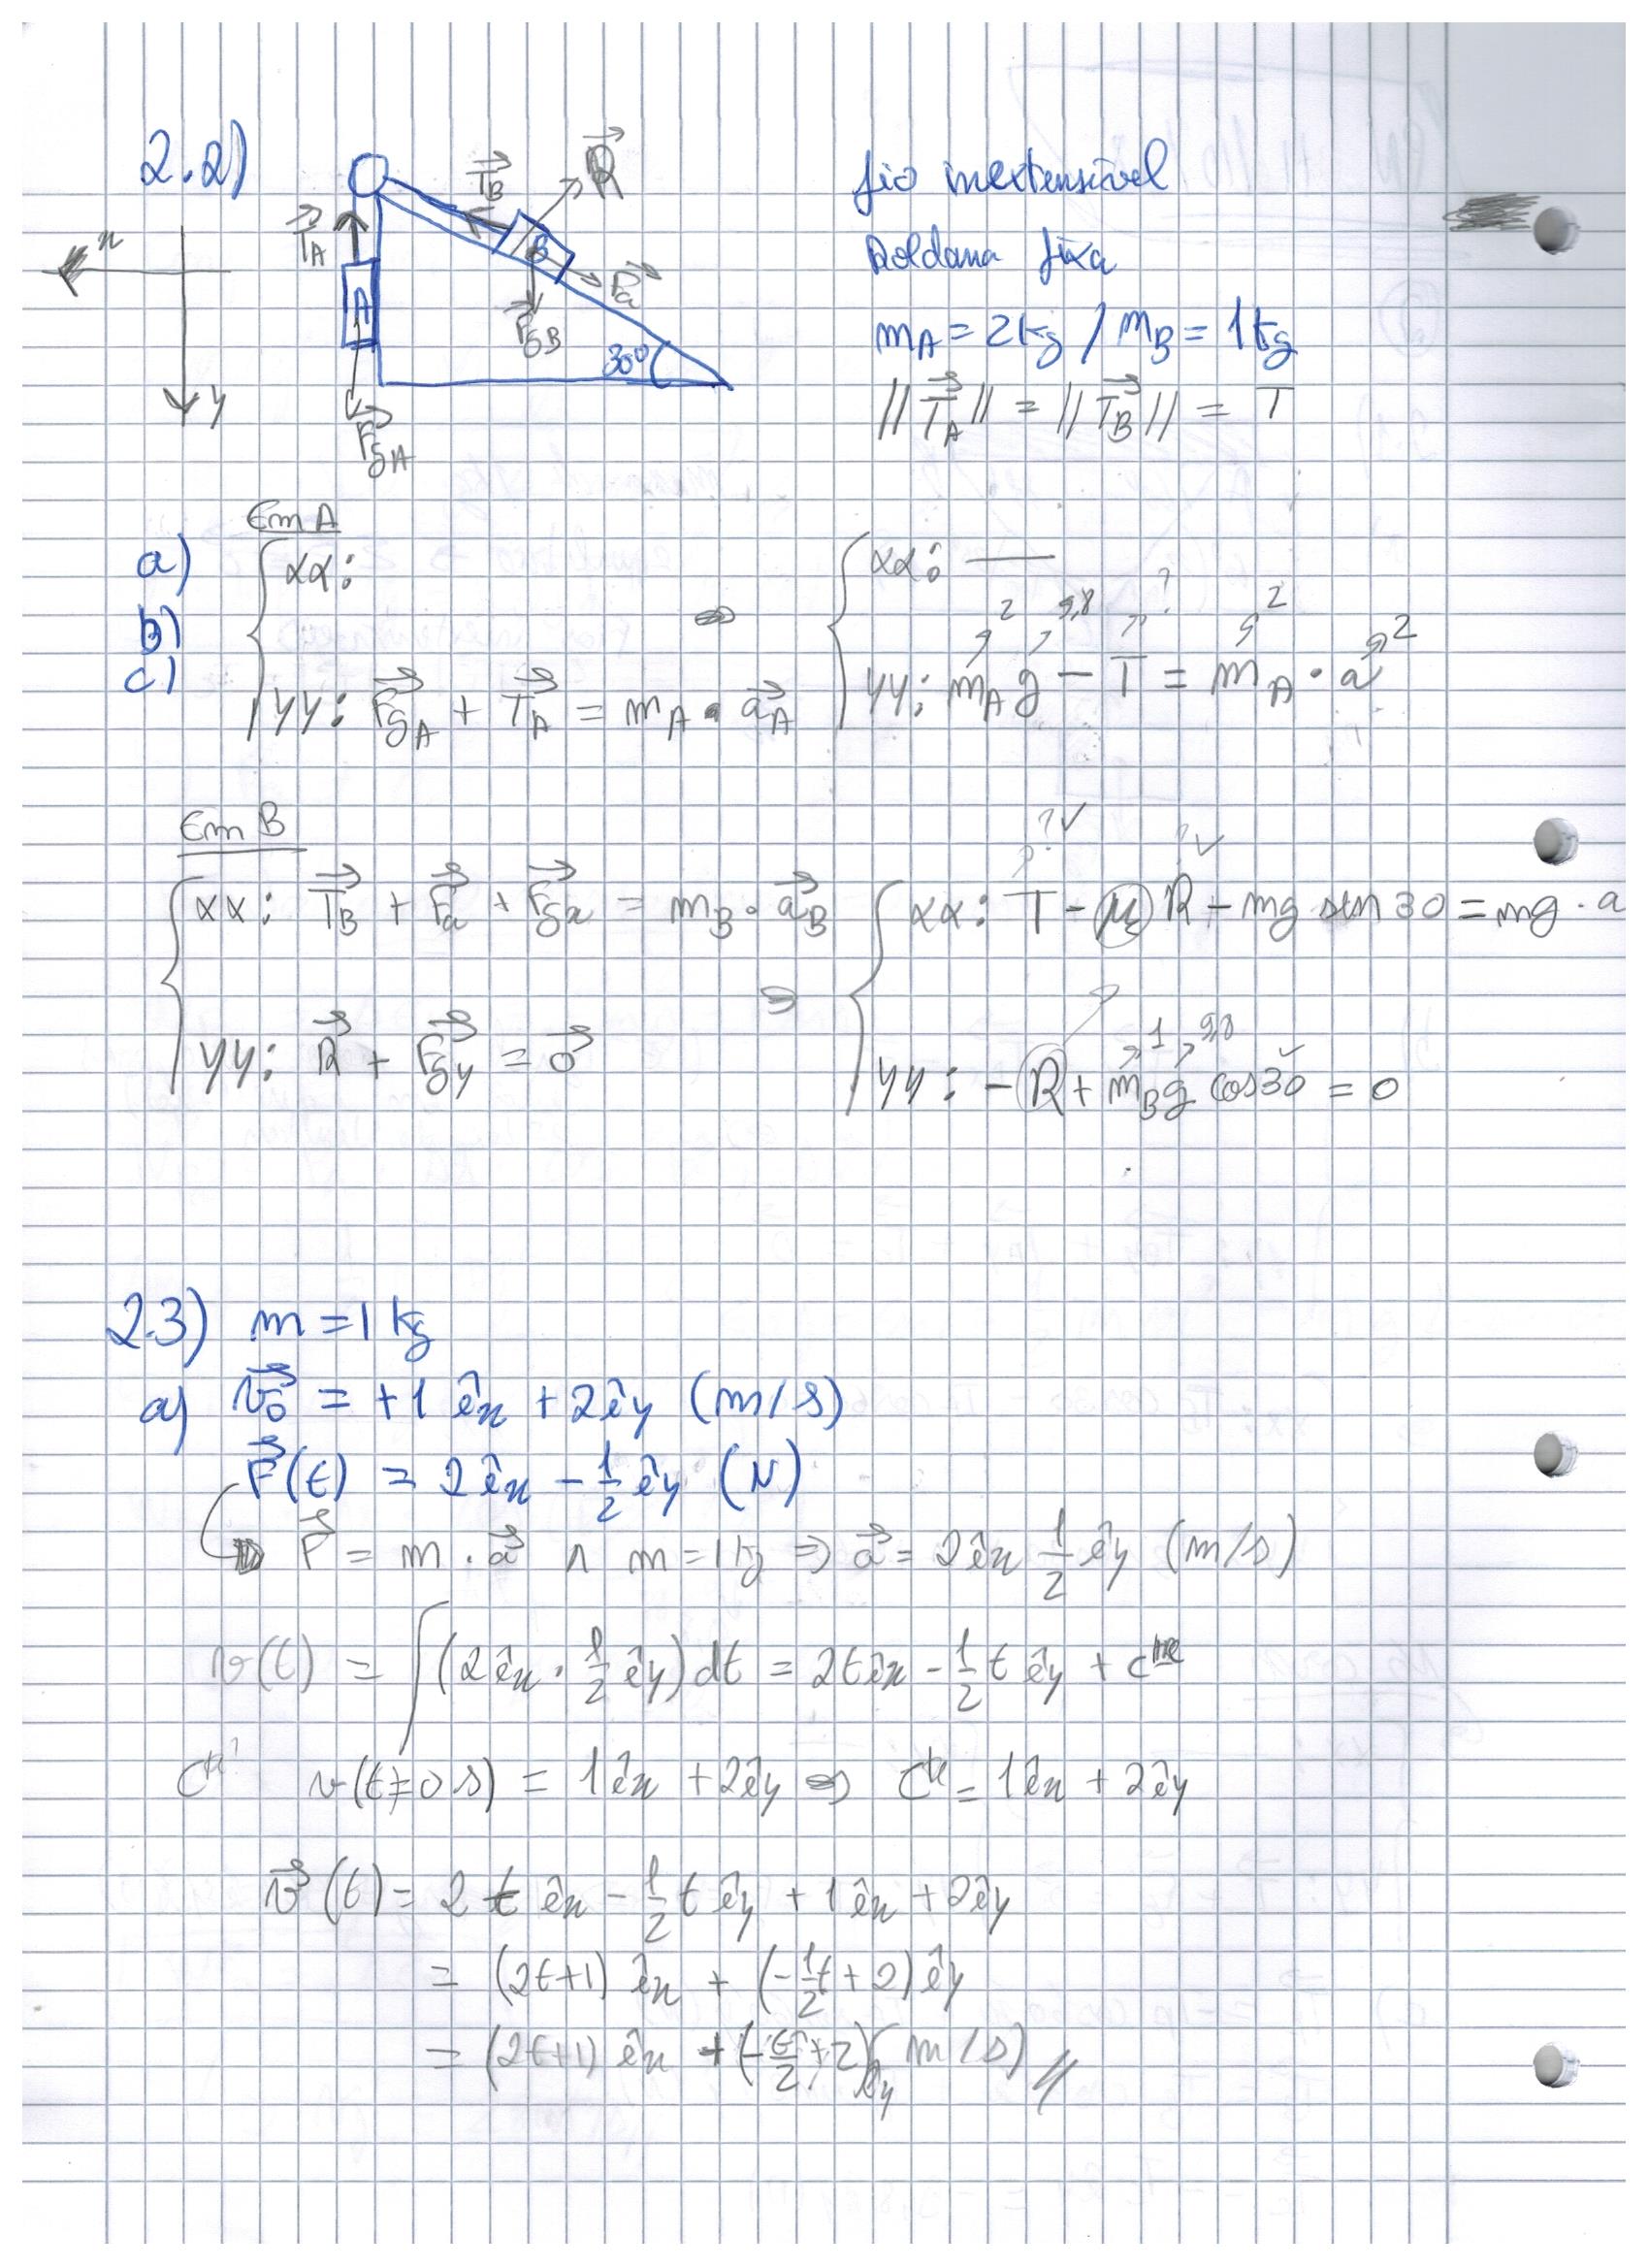 2.2)
x
y
T⃗A
T⃗B
R⃗
A
B
F⃗a
F⃗gB
F⃗gA
30º
fio inextensível
Roldana fixa
mA = 2kg / mB = 1kg
||T⃗A|| = ||T⃗B|| = T
Em A
a)
b)
c)
xx:
yy: F⃗gA + T⃗A = mA · a⃗A
xx: —
2 9,8 ? 2 2
yy: mA g − T = mA · a
Em B
xx: T⃗B + F⃗a + F⃗gx = mB · a⃗B
yy: R⃗ + F⃗gy = 0⃗
?✓ ?✓
xx: T − μ R − mg sen 30 = mg · a
⇒
1 9,8
yy: −R + mB g cos30 = 0
2.3) m = 1 kg
a) v⃗0 = +1 êx + 2êy (m/s)
F⃗(t) = 2êx − 1/2 êy (N)
F⃗ = m . a⃗ ∧ m = 1kg ⇒ a⃗ = 2êx 1/2 êy (m/s)
v(t) = ∫(2êx · 1/2 êy) dt = 2têx − 1/2 t êy + cte
cte? v(t=0s) = 1êx + 2êy ⇔ cte = 1êx + 2êy
v⃗(t) = 2 t êx − 1/2 t êy + 1êx + 2êy
= (2t+1) êx + (−1/2 t + 2) êy
= (2t+1) êx + (−t/2 + 2) êy (m/s) //